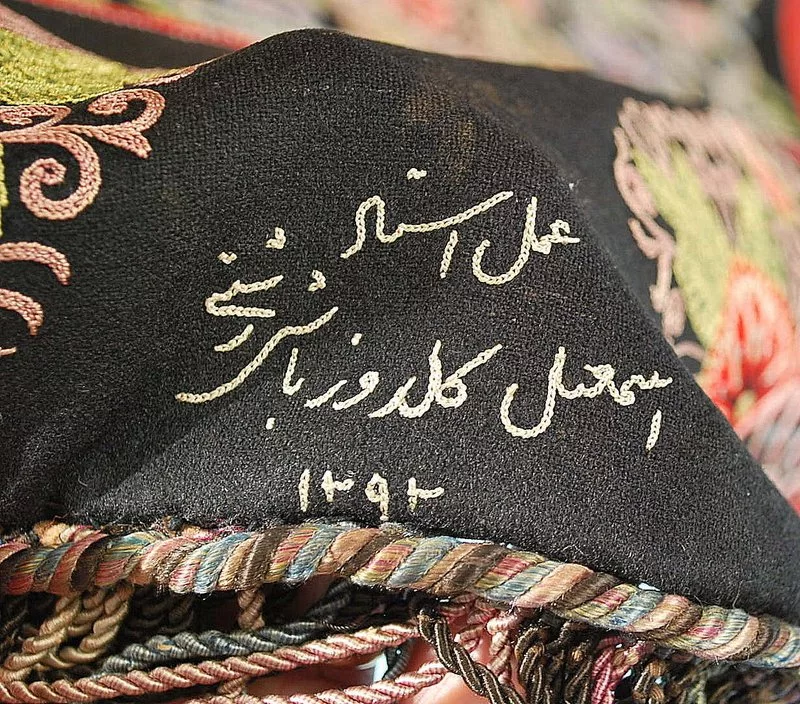 عمل استاد
اسمعیل کلدوز باشی رشتی
۱۲۹۲